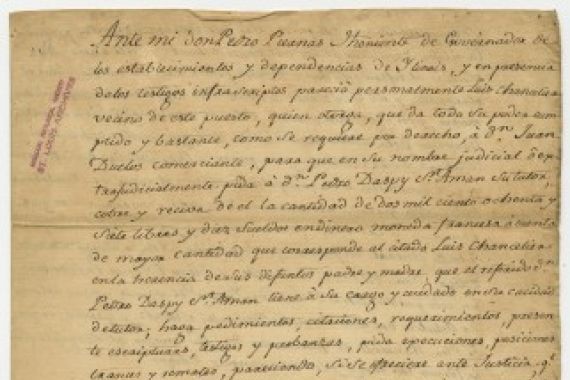 Ante mi don Pedro Piernas Theniente de Governador de
los establecimientos y dependencias de Ylinois, y en presencia
de los testigos infrascriptos pareció personalmente Luis Chancelier
vecino de este puesto, quien otorga, que da todo su poder cum-
plido y bastante, como se requiere por derecho, á dn. Juan
Duclos comerciante, para que en su nombre judicial ó ex-
trajudicialmente pida á dn. Pedro Daspy St. Aman su tutor,
cobre y reciva de él la cantidad de dos mil ciento ochenta y
siete libras y diez sueldos en dinero moneda francesa á cuenta
de mayor cantidad que corresponde al citado Luis Chancelier
en la herencia de sus difuntos padre y madre, que el referido dn.
Pedro Daspy St. Aman tiene á su cargo y cuidado en su calidad
de tutor; haga pedimientos, citaciones, requerimientos, presen-
te escripturas, testigos y probanzas, pida execuciones, posiciones
trances y remates, pareciendo, si se ofreciere ante Justicia, qe.
ST. LOUIS